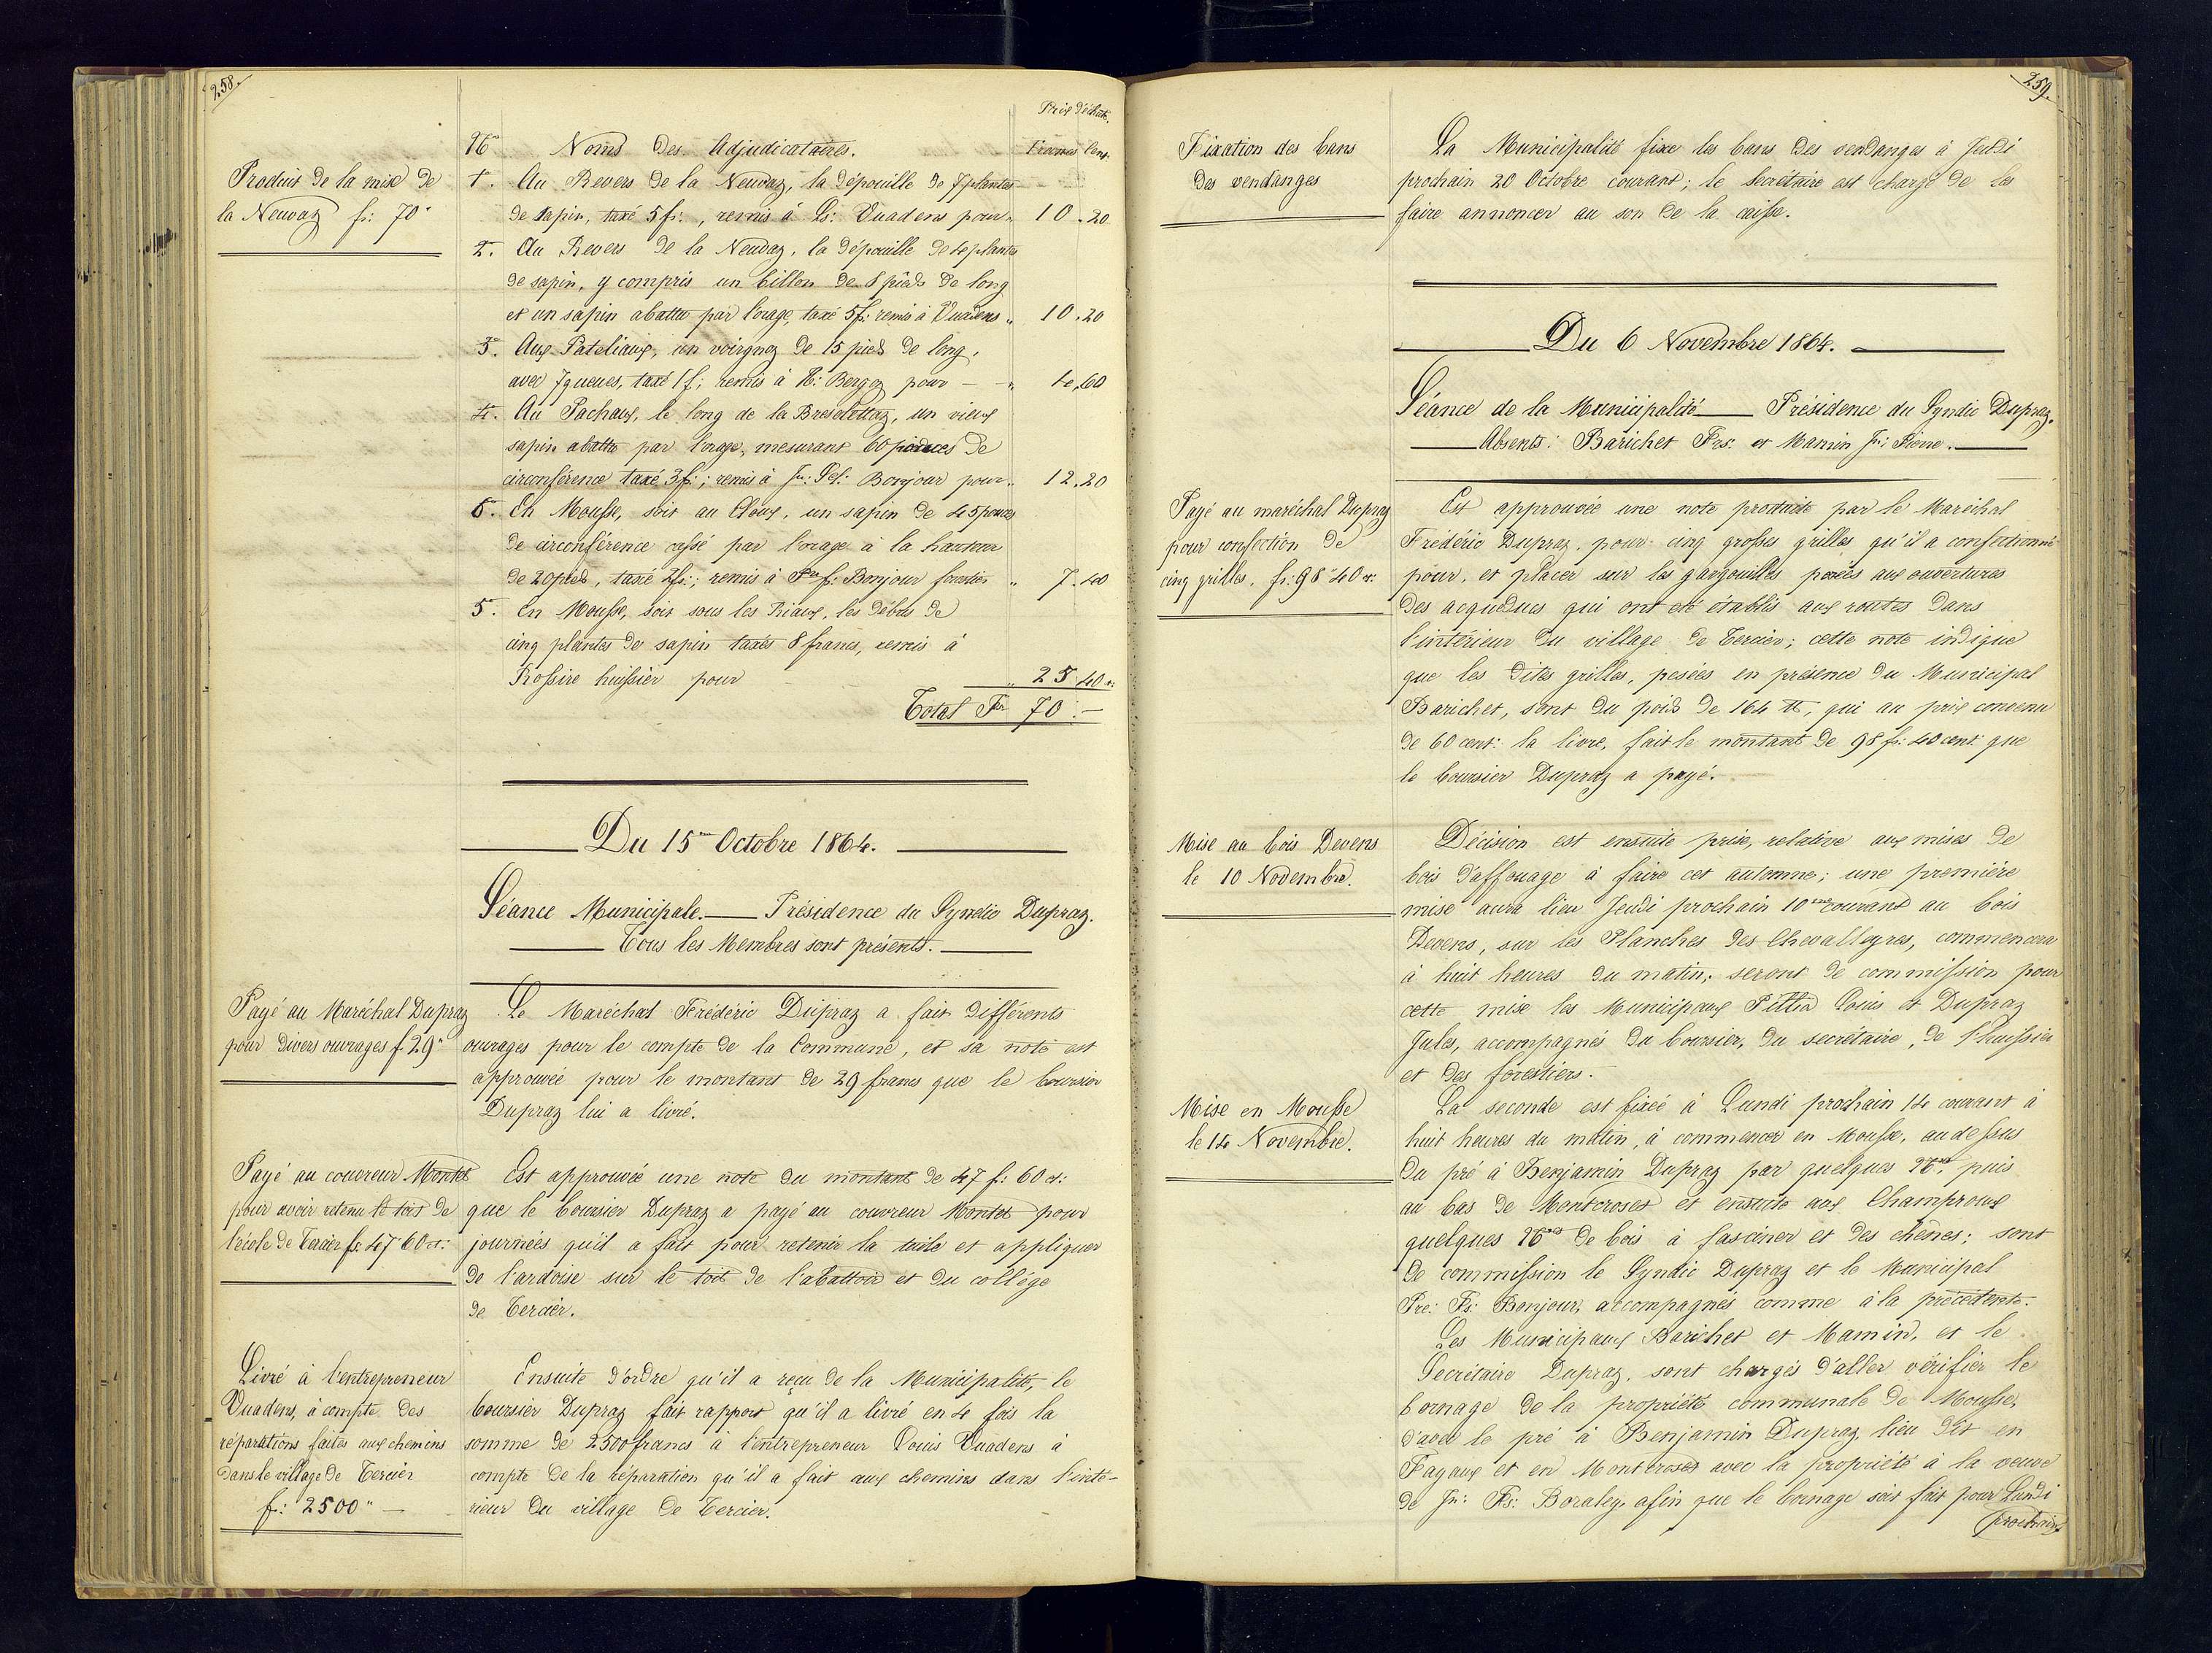 258.
Prix d'échute.
N.os Noms des Adjudicataires. Francs Cent.
Produit de la mise de
la Neuvaz fr: 70"
1. Au Revers de la Neuvaz, la dépouille de 7 plantes
de sapin, taxé 5 fr:, remis à Ls: Vuadens pour " 10.20
2. Au Revers de la Neuvaz, la dépouille de 4 plantes
de sapin, y compris un billon de 8 pieds de long
et un sapin abattu par l'orage, taxé 5 fr: remis à Vuadens " 10.20
3. Aux Pateliaux, un voirgnoz de 15 pieds de long,
avec 7 queues, taxé 1 f; remis à H: Bergoz pour — " 4.60
4. Au Pachaux, le long de la Bresolettaz, un vieux
sapin abattu par l'orage, mesurant 60 pouces de
circonférence taxé 3 fr:; remis à Jn: Bonjour pour " 12.20
5. En Mousse, soit au Cloux, un sapin de 45 pouces
de circonférence cassé par l'orage à la hauteur
de 20 pieds, taxé 2 fr:; remis à Pre f: Bonjour forestier " 7.40
5. En Mousse, soit sous les Riaux, les débris de
cinq plantes de sapin taxés 8 francs, remis à
Rossire huissier pour " 25.40 "
Total Fr 70. —
Du 15me Octobre 1864.
Séance Municipale. — Présidence du Syndic Dupraz.
Tous les Membres sont présents.
Payé au Maréchal Dupraz
pour divers ouvrages f. 29"
Le Maréchal Frédéric Dupraz a fait différents
ouvrages pour le compte de la Commune, et sa note est
approuvée pour le montant de 29 francs que le boursier
Dupraz lui a livré.
Payé au couvreur Montet
pour avoir retenu le toit de
l'école de Tercier fr: 47 60 ct:
Est approuvée une note du montant de 47 f: 60 ct:
que le boursier Dupraz a payé au couvreur Montet pour
journées qu'il a fait pour retenir la tuile et appliquer
de l'ardoise sur le toit de l'abattoir et du collége
de Tercier.
Livré à l'entrepreneur
Vuadens, à compte des
réparations faites aux chemins
dans le village de Tercier
fr: 2500 " —
Ensuite d'ordre qu'il a reçu de la Municipalité, le
boursier Dupraz fait rapport qu'il a livré en 4 fois la
somme de 2500 francs à l'entrepreneur Louis Vuadens à
compte de la réparation qu'il a fait aux chemins dans l'inté-
rieur du village de Tercier.
259.
Fixation des bans
des vendanges
La Municipalité fixe les bans des vendanges à Jeudi
prochain 20 Octobre courant; le secrétaire est chargé de les
faire annoncer au son de la caisse.
Du 6 Novembre 1864.
Séance de la Municipalité — Présidence du Syndic Dupraz.
Absents: Barichet Frs: et Mamin Jn: Pierre.
Payé au maréchal Dupraz
pour confection de
cinq grilles, fr: 98 " 40 ct:
Est approuvée une note produite par le Maréchal
Frédéric Dupraz, pour cinq grosses grilles qu'il a confectionné
pour, et placer sur les gargouilles posées aux ouvertures
des acqueducs qui ont été établis aux routes dans
l'intérieur du village de Tercier; cette note indique
que les dites grilles, pesées en présence du Municipal
Barichet, sont du poids de 164 ℔, qui au prix convenu
de 60 cent: la livre, fait le montant de 98 fr: 40 cent: que
le boursier Dupraz a payé.
Mise au bois Devens
le 10 Novembre.
Décision est ensuite prise, relative aux mises de
bois d'affouage à faire cet automne; une première
mise aura lieu Jeudi prochain 10me courant au bois
Devens, sur les Planches des Chevalleyres, commencera
à huit heures du matin; seront de commission pour
cette mise les Municipaux Pittier Louis et Dupraz
Jules, accompagnés du boursier, du secrétaire, de l'huissier
et des forestiers.
Mise en Mousse
le 14 Novembre.
La seconde est fixée à Lundi prochain 14 courant à
huit heures du matin, à commencer en Mousse, au dessus
du pré à Benjamin Dupraz par quelques Nos, puis
au bas de Montcroset et ensuite aux Champroux
quelques Nos de bois à fasciner et des chênes; sont
de commission le Syndic Dupraz et le Municipal
Pre: Fs: Bonjour, accompagnés comme à la précédente.
Les Municipaux Barichet et Mamin, et le
Secrétaire Dupraz, sont chargés d'aller vérifier le
bornage de la propriété communale de Mousse,
d'avec le pré à Benjamin Dupraz lieu dit en
Fayaux et en Montcroset avec la propriété à la veuve
de Jn: Fs: Boraley afin que le bornage soit fait pour Lundi
prochain